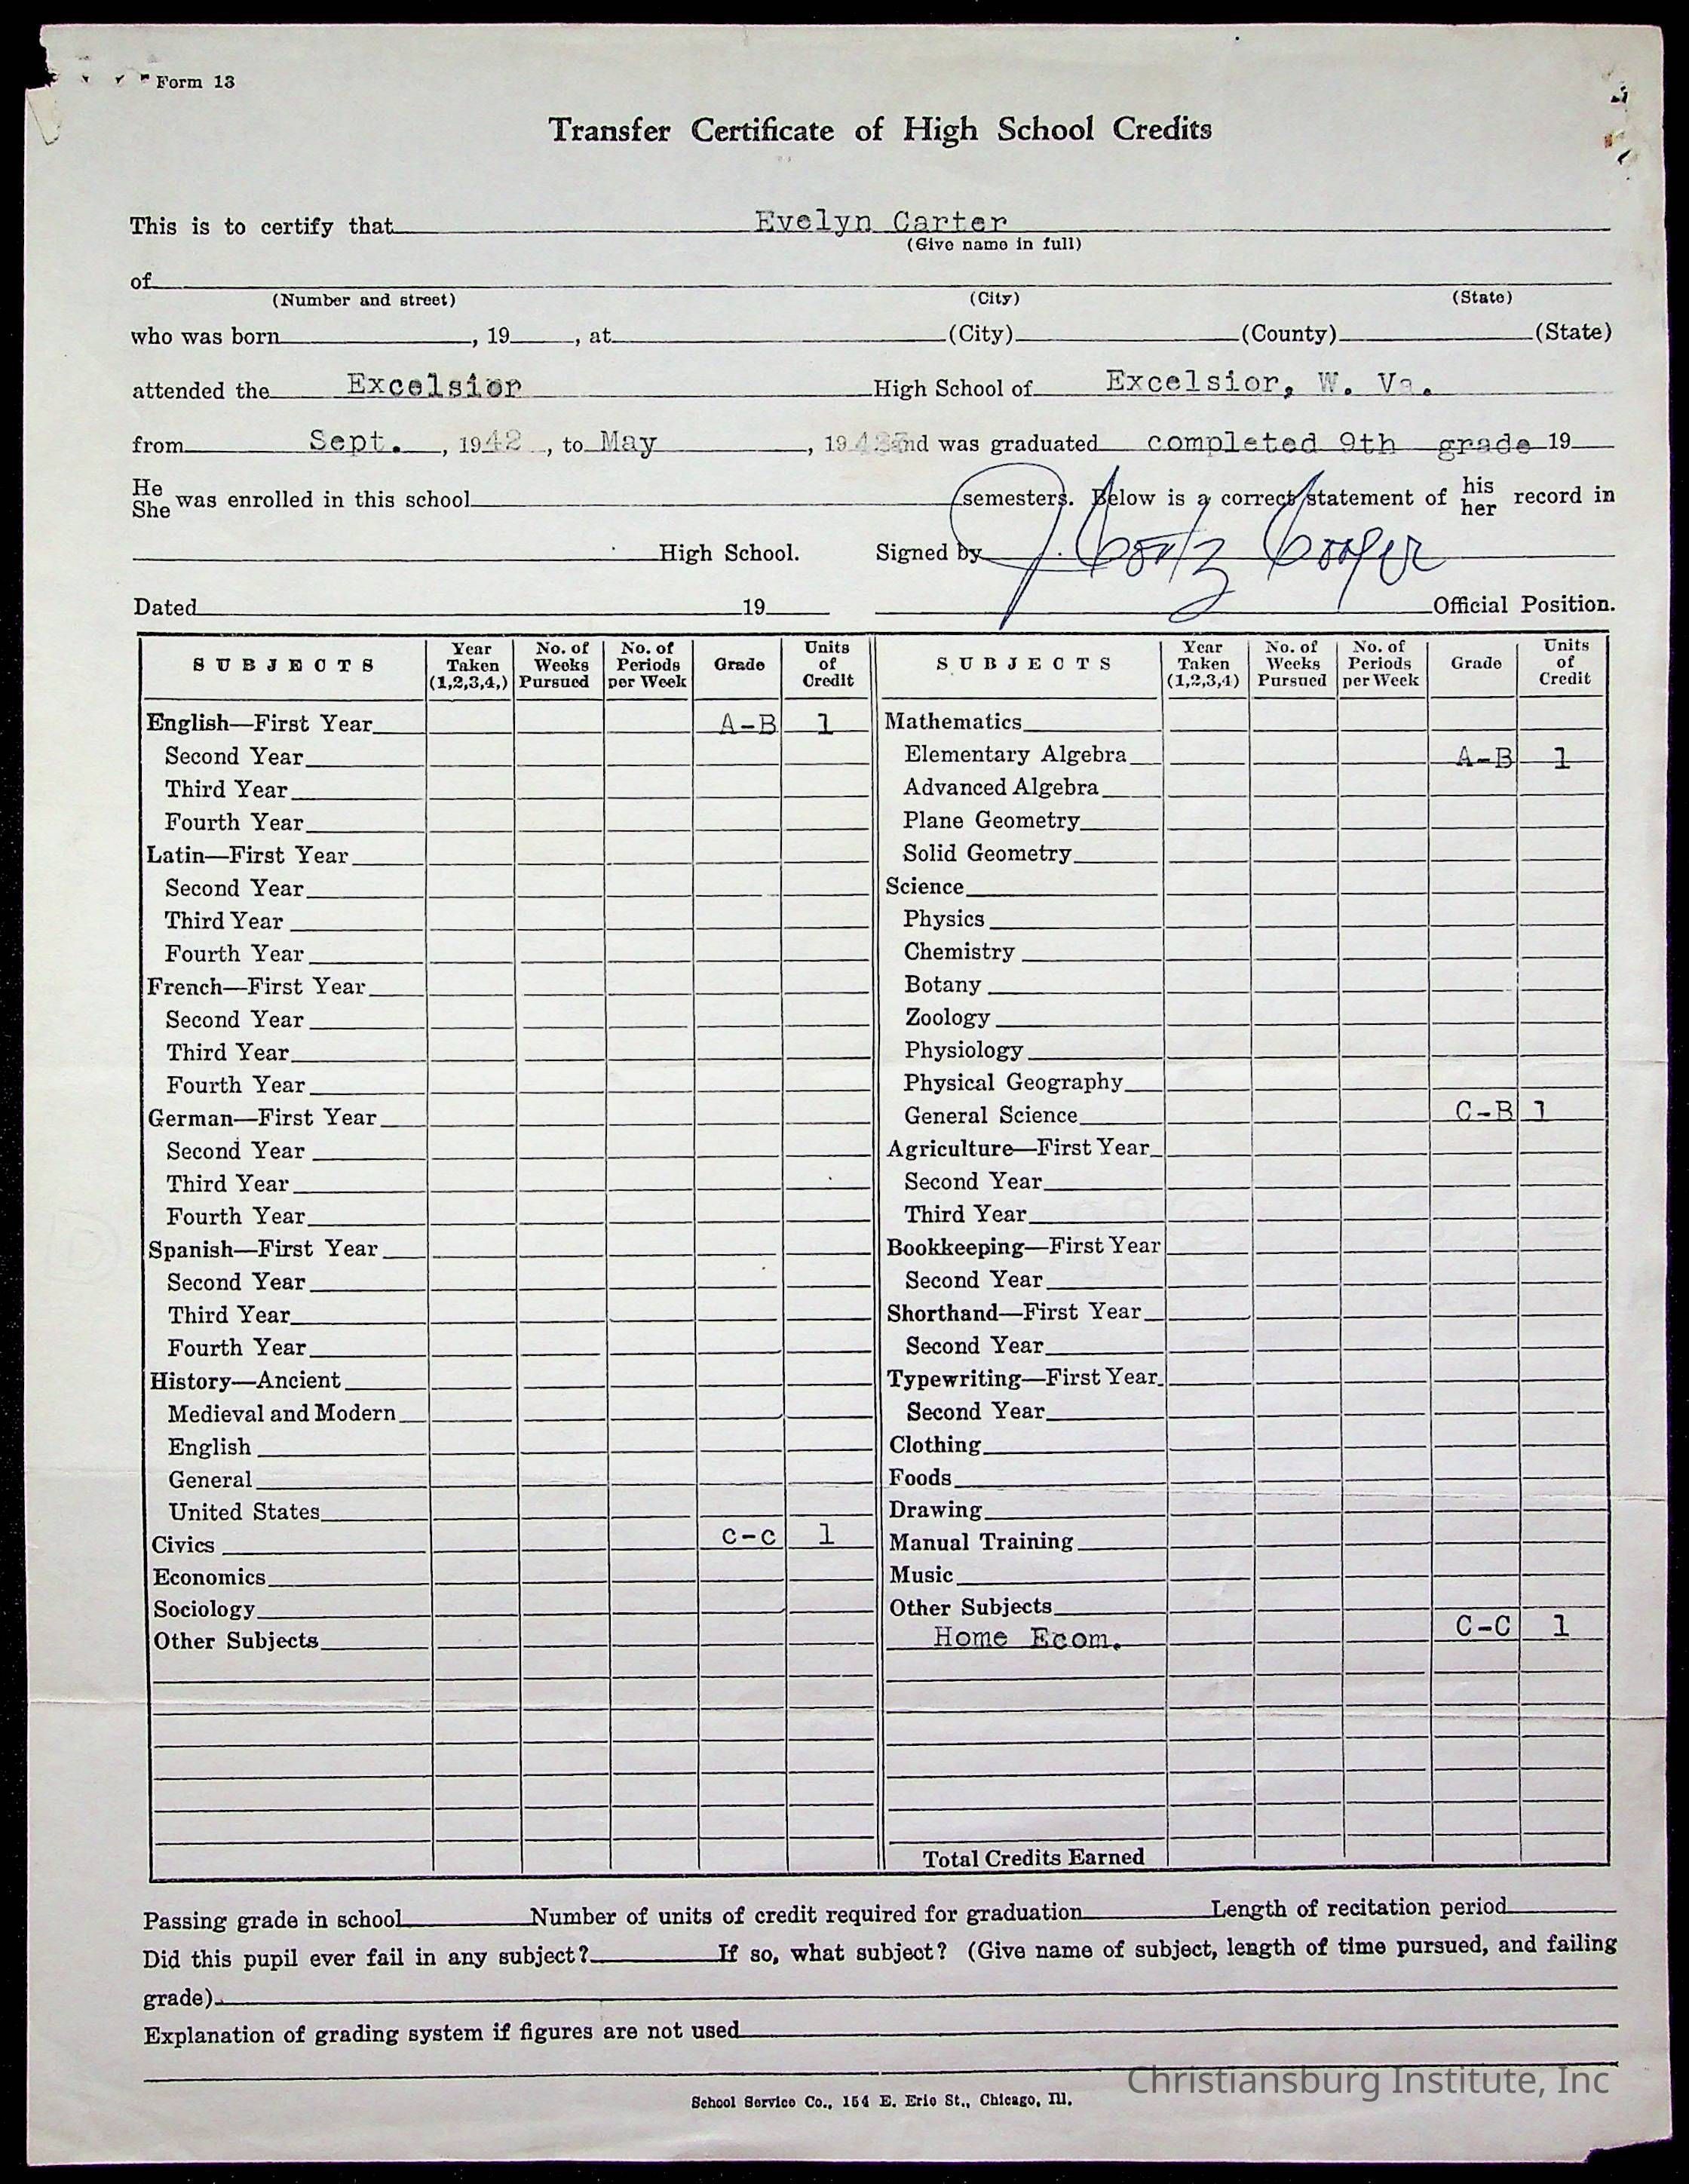 Form 13
Transfer Certificate of High School Credits
This is to certify that Evelyn Carter
(Give name in full)
of
(Number and street) (City) (State)
who was born , 19 , at (City) (County) (State)
attended the Excelsior High School of Excelsior, W. Va.
from Sept. , 1942 , to May , 19 and was graduated completed 9th grade 19
He She was enrolled in this school semesters. Below is a correct statement of his her record in
High School. Signed by Cooper
Dated 19 Official Position.
SUBJECTS Year Taken (1,2,3,4,) No. of Weeks Pursued No. of Periods per Week Grade Units of Credit SUBJECTS Year Taken (1,2,3,4) No. of Weeks Pursued No. of Periods per Week Grade Units of Credit
English—First Year A-B 1 Mathematics
Second Year Elementary Algebra A-B 1
Third Year Advanced Algebra
Fourth Year Plane Geometry
Latin—First Year Solid Geometry
Second Year Science
Third Year Physics
Fourth Year Chemistry
French—First Year Botany
Second Year Zoology
Third Year Physiology
Fourth Year Physical Geography
German—First Year General Science C-B 1
Second Year Agriculture—First Year
Third Year Second Year
Fourth Year Third Year
Spanish—First Year Bookkeeping—First Year
Second Year Second Year
Third Year Shorthand—First Year
Fourth Year Second Year
History—Ancient Typewriting—First Year
Medieval and Modern Second Year
English Clothing
General Foods
United States Drawing
Civics C-C 1 Manual Training
Economics Music
Sociology Other Subjects
Other Subjects Home Ecom. C-C 1
Total Credits Earned
Passing grade in school Number of units of credit required for graduation Length of recitation period
Did this pupil ever fail in any subject? If so, what subject? (Give name of subject, length of time pursued, and failing
grade)
Explanation of grading system if figures are not used
Christiansburg Institute, Inc
School Service Co., 154 E. Erie St., Chicago, Ill.